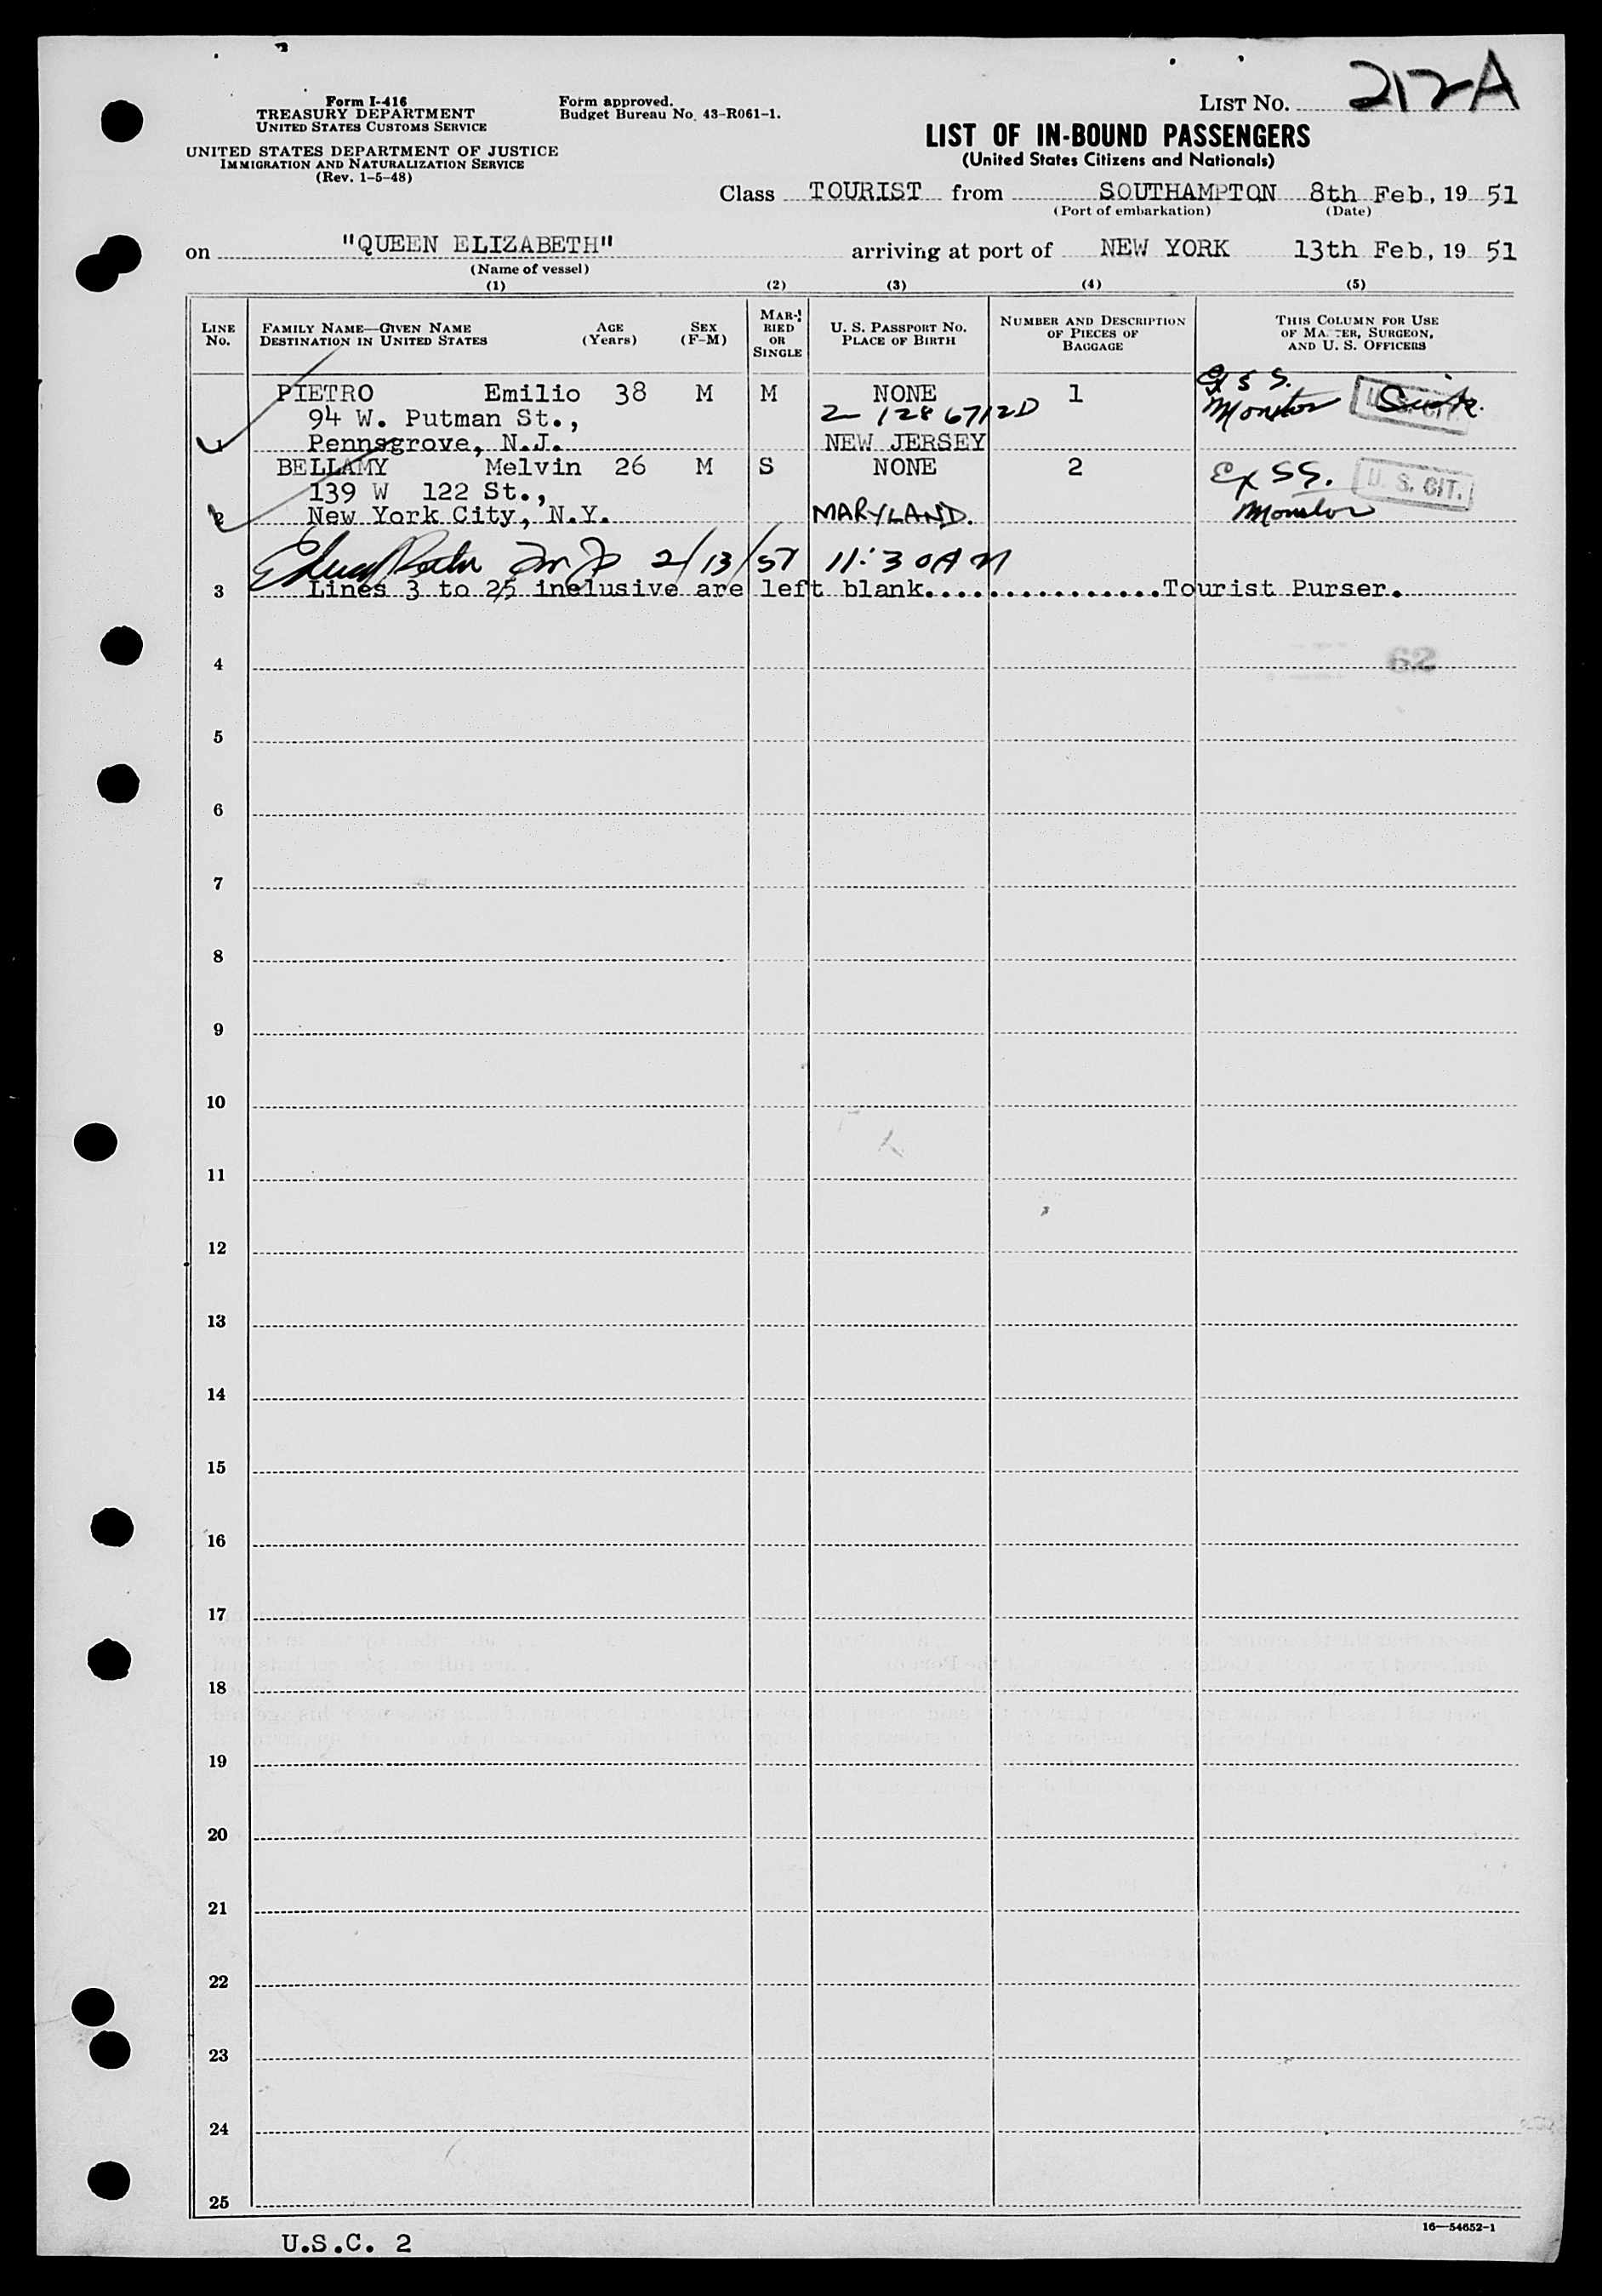 LIST NO. 212A
Form I-416
TREASURY DEPARTMENT
UNITED STATES CUSTOMS SERVICE
Form approved.
Budget Bureau No. 43-R061-1.
UNITED STATES DEPARTMENT OF JUSTICE
IMMIGRATION AND NATURALIZATION SERVICE
(Rev. 1-5-48)
LIST OF IN-BOUND PASSENGERS
(United States Citizens and Nationals)
Class TOURIST from SOUTHAMPTON 8th Feb, 19 51
(Port of embarkation) (Date)
on "QUEEN ELIZABETH" arriving at port of NEW YORK 13th Feb, 19 51
(Name of vessel)
(1) (2) (3) (4) (5)
LINE No. FAMILY NAME—GIVEN NAME DESTINATION IN UNITED STATES AGE (Years) SEX (F-M) MARRIED OR SINGLE U. S. PASSPORT NO. PLACE OF BIRTH NUMBER AND DESCRIPTION OF PIECES OF BAGGAGE THIS COLUMN FOR USE OF MASTER, SURGEON, AND U. S. OFFICERS
PIETRO Emilio 38 M M NONE 1 Ex SS.
94 W. Putman St., Z-1286712D Monitor
1 Pennsgrove, N.J. NEW JERSEY
BELLAMY Melvin 26 M S NONE 2 Ex SS. U. S. CIT.
139 W 122 St.,
2 New York City, N.Y. MARYLAND. Monitor
2/13/51 11:30AM
3 Lines 3 to 25 inclusive are left blank...............Tourist Purser.
4 62
5
6
7
8
9
10
11
12
13
14
15
16
17
18
19
20
21
22
23
24
25
16—54652-1
U.S.C. 2